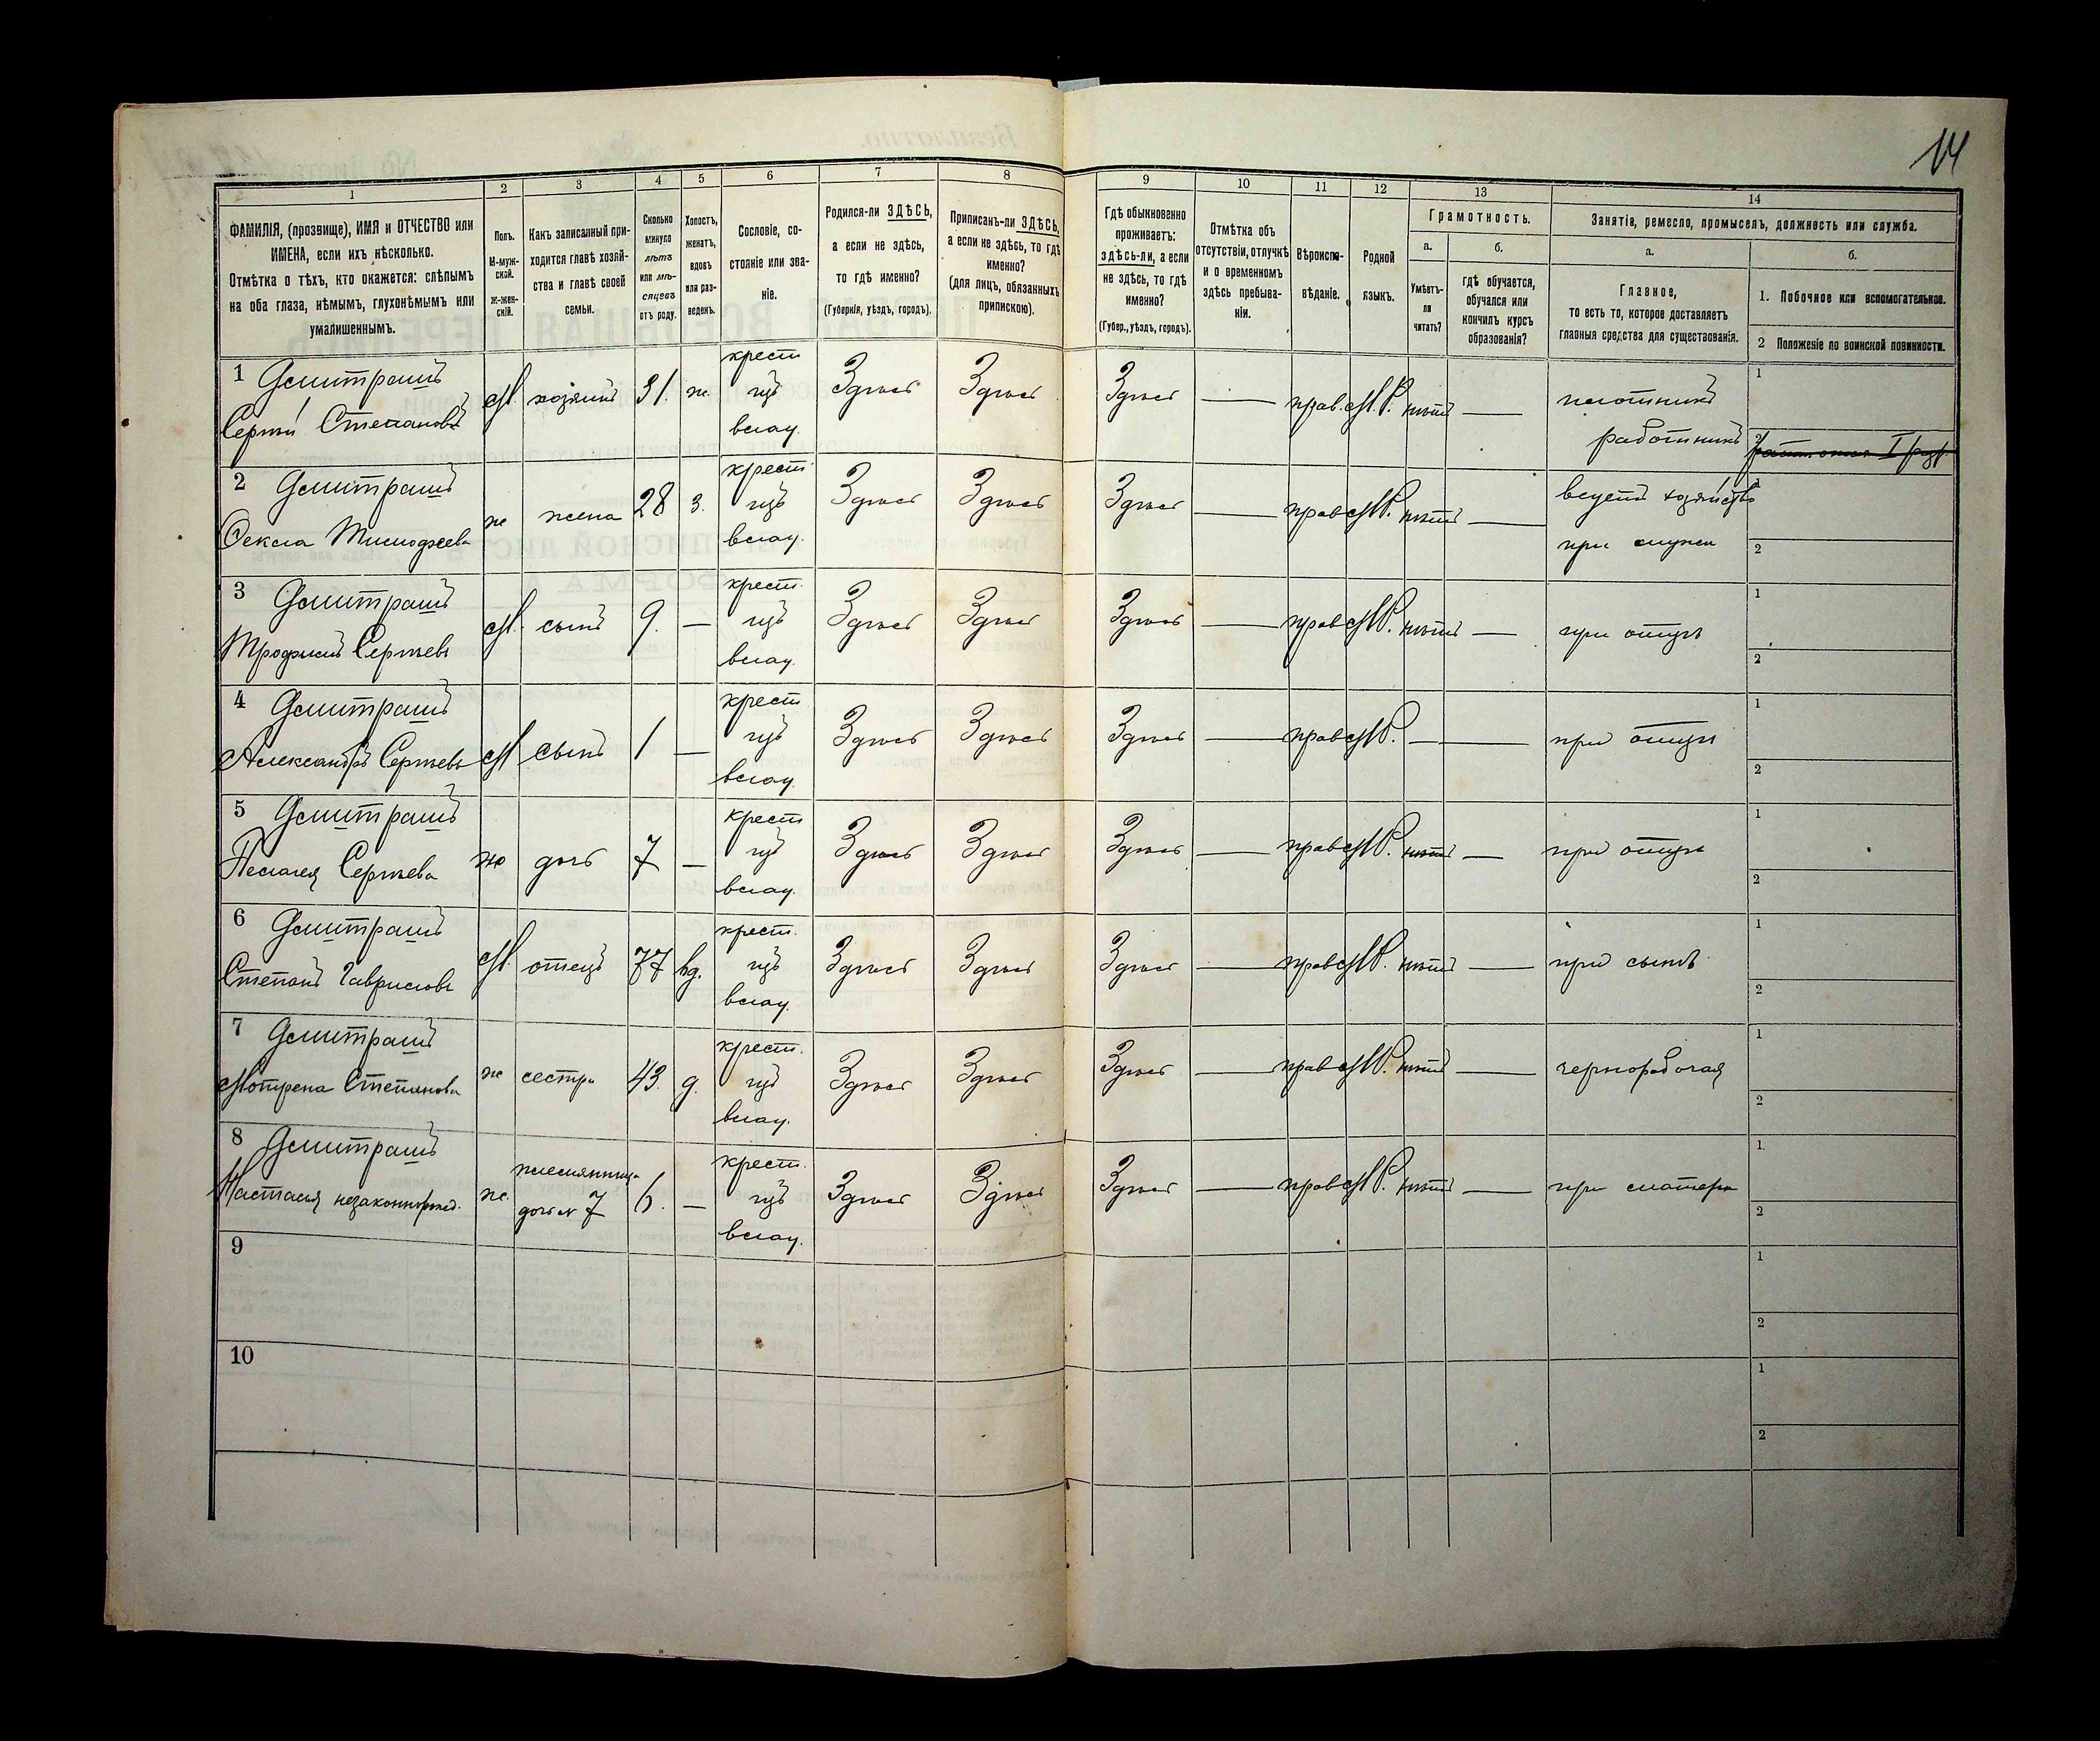 14
1
2
3
4
5
6
7
8
9
10
11
12
13
14
ФАМИЛІЯ, (прозвище), ИМЯ и ОТЧЕСТВО или
ИМЕНА, если ихъ нѣсколько.
Отмѣтка о тѣхъ, кто окажется: слѣпымъ
на оба глаза, нѣмымъ, глухонѣмымъ или
умалишеннымъ.
Полъ.
М-муж-
ской.
Ж-жен-
скій.
Какъ записанный при-
ходится главѣ хозяй-
ства и главѣ своей
семьи.
Сколько
минуло
лѣтъ
или мѣ-
сяцевъ
отъ роду.
Холостъ,
женатъ,
вдовъ
или раз-
веденъ.
Сословіе, со-
стояніе или зва-
ніе.
Родился-ли ЗДѢСЬ,
а если не здѣсь,
то гдѣ именно?
(Губернія, уѣздъ, городъ).
Приписанъ-ли ЗДѢСЬ,
а если не здѣсь, то гдѣ
именно?
(для лицъ, обязанныхъ
припискою).
Гдѣ обыкновенно
проживаетъ:
здѣсь-ли, а если
не здѣсь, то гдѣ
именно?
(Губер., уѣздъ, городъ).
Отмѣтка объ
отсутствіи, отлучкѣ
и о временномъ
здѣсь пребыва-
ніи.
Вѣроиспо-
вѣданіе.
Родной
языкъ.
Грамотность.
а.
Умѣетъ-
ли
читать?
б.
гдѣ обучается,
обучался или
кончилъ курсъ
образованія?
Занятія, ремесло, промыселъ, должность или служба.
а.
Главное,
то есть то, которое доставляетъ
главныя средства для существованія.
б.
1. Побочное или вспомогательное.
2 Положеніе по воинской повинности.
1 Демитрашъ
Сергѣй Степановъ
М хозяинъ 31. ж. крест
изъ
влад.
Здѣсь Здѣсь Здѣсь — прав. М.Р. нѣтъ — плотникъ
работникъ
1
2
2 Демитрашъ
Ѳекла Тимофеева
ж жена 28 з. крест
изъ
влад.
Здѣсь Здѣсь Здѣсь — прав М.Р. нѣтъ — ведетъ хозяйство
при мужи
2
3 Демитрашъ
Трофимъ Сергѣевъ
М. сынъ 9. — крест.
изъ
влад.
Здѣсь Здѣсь Здѣсь — прав М.Р. нѣтъ — при отцѣ
1
2
4 Демитрашъ
Александръ Сергѣевъ
М сынъ 1 — крест
изъ
влад.
Здѣсь Здѣсь Здѣсь — прав М.Р. — — при отцѣ
1
2
5 Демитрашъ
Пелагея Сергѣева
ж дочь 7 — крест
изъ
влад.
Здѣсь Здѣсь Здѣсь — прав М.Р. нѣтъ — при отцѣ
1
2
6 Демитрашъ
Степанъ Гавриловъ
М. отецъ 77 вд. крест.
изъ
влад.
Здѣсь Здѣсь Здѣсь — прав М.Р. нѣтъ — при сынѣ
1
2
7 Демитрашъ
Мотрена Степанова
ж сестра 43. д. крест.
изъ
влад.
Здѣсь Здѣсь Здѣсь — прав М.Р. нѣтъ — чернорабочая
1
2
8 Демитрашъ
Настасья незаконнорожд.
ж. племянница
дочь № 7
6. — крест.
изъ
влад.
Здѣсь Здѣсь Здѣсь — прав М.Р. нѣтъ — при матери
1
2
9
1
2
10
1
2